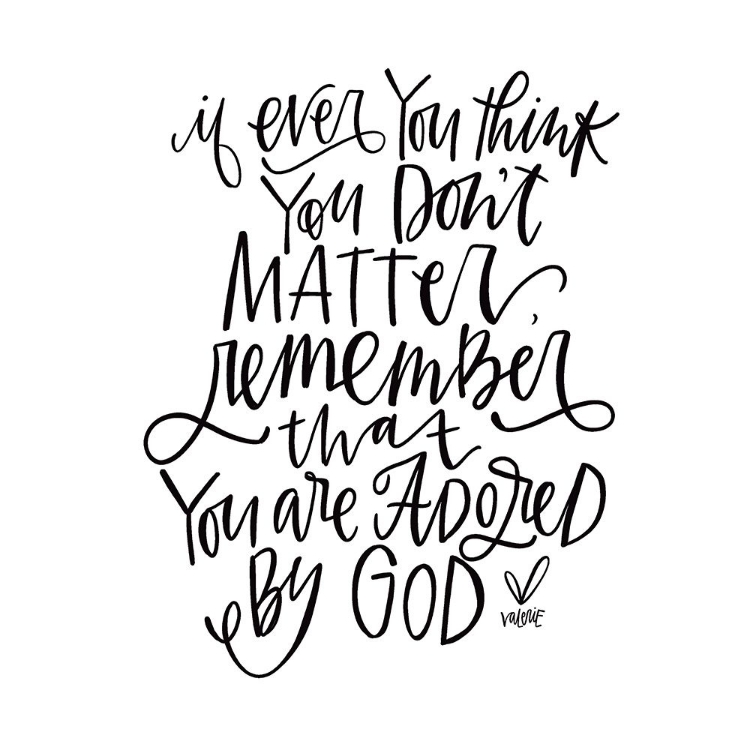 if ever You think
You Don't
MATTer,
rememBer
that
You are ADoreD
By GOD
valeriE